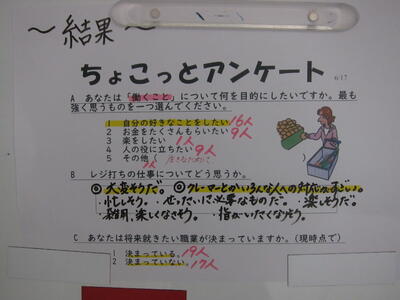 ～結果～
ちょこっとアンケート 6/17
A あなたは「働くこと」について何を目的にしたいですか。最も
強く思うものを一つ選んでください。
1 自分の好きなことをしたい 16人
2 お金をたくさんもらいたい 9人
3 楽をしたい 1人
4 人の役に立ちたい 9人
5 その他（生きるために）
1人
B レジ打ちの仕事についてどう思うか。
◎大変そうだ。◎クレーマーとかいろんな人への対応がすごい。
・忙しそう。・ぜったいに必要なものだ。・楽しそうだ。
・雑用、楽しくなさそう。・指がいたくなりそう。
C あなたは将来就きたい職業が決まっていますか。（現時点で）
1 決まっている。19人
2 決まっていない。17人